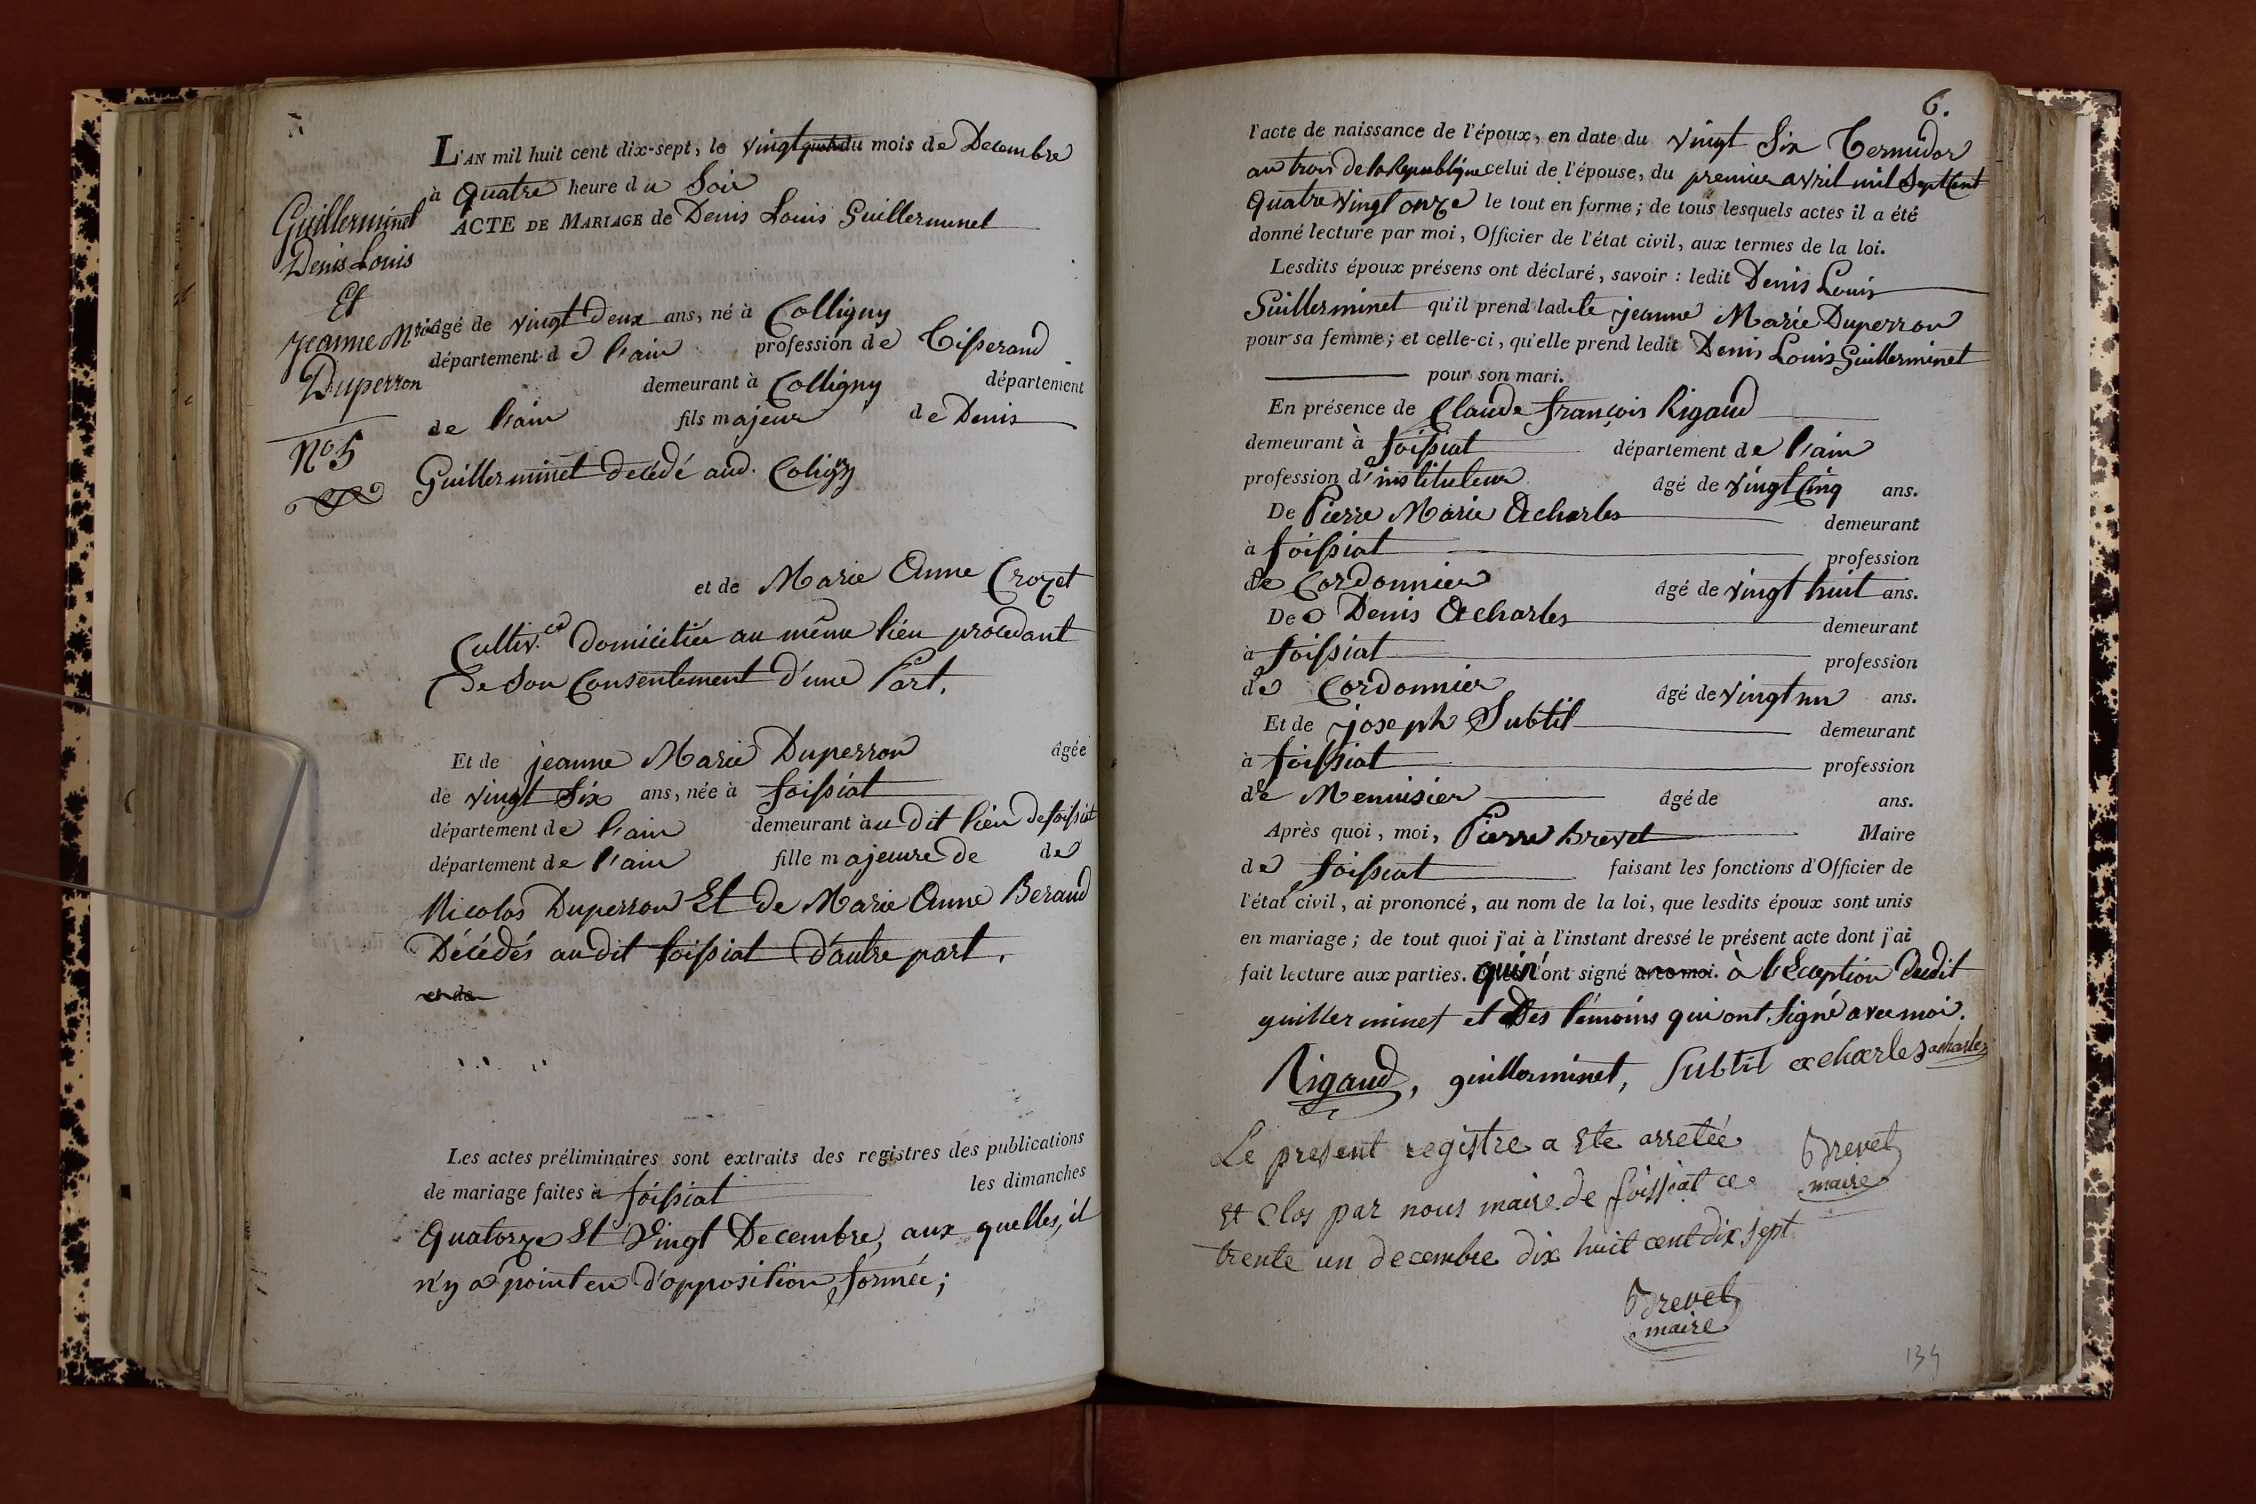 L'AN mil huit cent dix-sept, le vingt quatre du mois de Decembre
à quatre heure du Soir
ACTE DE MARIAGE de Denis Louis Guillerminet
Guillerminet
Denis Louis
Et
jeanne Mrie
Duperron
No 5
âgé de vingt deux ans, né à Colligny
département de l'ain profession de Tisserand
demeurant à Colligny département
de l'ain fils majeur de Denis
Guillerminet decédé aud. Coligny
et de Marie Anne Crozet
Cultiv.ce domiciliée au même lieu procedant
de son Consentement d'une Part.
Et de jeanne Marie Duperron âgée
de vingt Six ans, née à foissiat
département de l'ain demeurant audit lieu de foissiat
département de l'ain fille majeure de de
Nicolas Duperron Et de Marie Anne Beraud
Décédés audit foissiat d'autre part.
et de
Les actes préliminaires sont extraits des registres des publications
de mariage faites à foissiat les dimanches
Quatorze Et Vingt Decembre, aux quelles, il
n'y a point eu d'opposition formée;
6.
l'acte de naissance de l'époux, en date du vingt Six Termidor
an trois de la Republique celui de l'épouse, du premier avril mil Sept Cent
quatre Vingt onze le tout en forme; de tous lesquels actes il a été
donné lecture par moi, Officier de l'état civil, aux termes de la loi.
Lesdits époux présens ont déclaré, savoir : ledit Denis Louis
Guillerminet qu'il prend ladite jeanne Marie Duperron
pour sa femme; et celle-ci, qu'elle prend ledit Denis Louis Guillerminet
pour son mari.
En présence de Claude françois Rigaud
demeurant à foissiat département de l'ain
profession d'instituteur âgé de vingt Cinq ans.
De Pierre Marie Acharles demeurant
à foissiat profession
de Cordonnier âgé de vingt huit ans.
De Denis Acharles demeurant
à foissiat profession
de Cordonnier âgé de vingt un ans.
Et de joseph Subtil demeurant
à foissiat profession
de Menuisier âgé de ans.
Après quoi, moi, Pierre brevet Maire
de foissiat faisant les fonctions d'Officier de
l'état civil, ai prononcé, au nom de la loi, que lesdits époux sont unis
en mariage; de tout quoi j'ai à l'instant dressé le présent acte dont j'ai
fait lecture aux parties. qui n'ont signé avec moi. à l'Exception dudit
guillerminet et Des témoins qui ont Signé avec moi.
Rigaud, guillerminet, Subtil acharles acharles
Le present registre a Ete arretée Brevet
Et Clos par nous maire de foissiat ce maire
trente un decembre dix huit cent dix sept
Brevet
maire
134